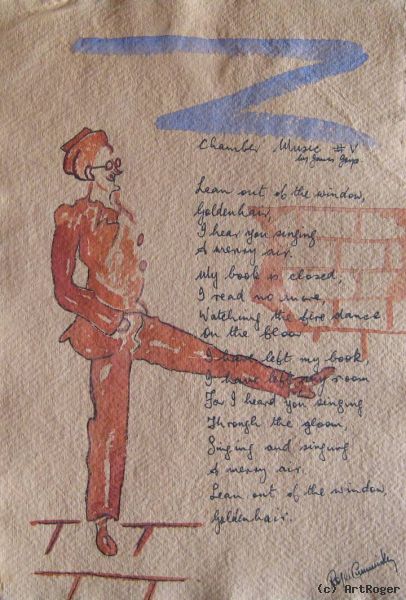 Chamber Music #V
by James Joyce
Lean out of the window,
Goldenhair,
I hear you singing
A merry air.
My book is closed,
I read no more,
Watching the fire dance
On the floor
I have left my book,
I have left my room
For I heard you singing
Through the gloom,
Singing and singing
A merry air.
Lean out of the window,
Goldenhair.
(c) ArtRoger